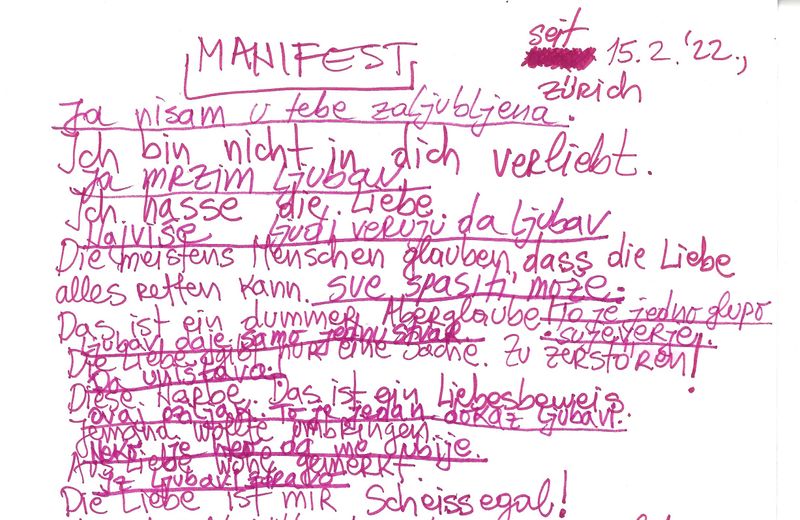 MANIFEST
seit 15.2.'22.,
ZÜRICH
Ja nisam u tebe zaljubljena.
Ich bin nicht in dich verliebt.
Ja mrzim ljubav
Ich hasse die Liebe
Najviše ljudi veruju da ljubav
Die meistens Menschen glauben, dass die Liebe
alles retten kann. sve spasiti može.
Das ist ein dummer Aberglaube. To je jedno glupo
sujeverje.
Ljubav daje samo jednu stvar.
Die Liebe gibt nur eine Sache. Zu zerstören!
Da uništava.
Diese Narbe. Das ist ein Liebesbeweis
ovaj ožiljak. To je jedan dokaz ljubavi.
Jemand wollte umbringen.
Neko je hteo da me ubije.
Aus Liebe wohl gemerkt
Iz ljubavi
Die Liebe ist mir Scheissegal!